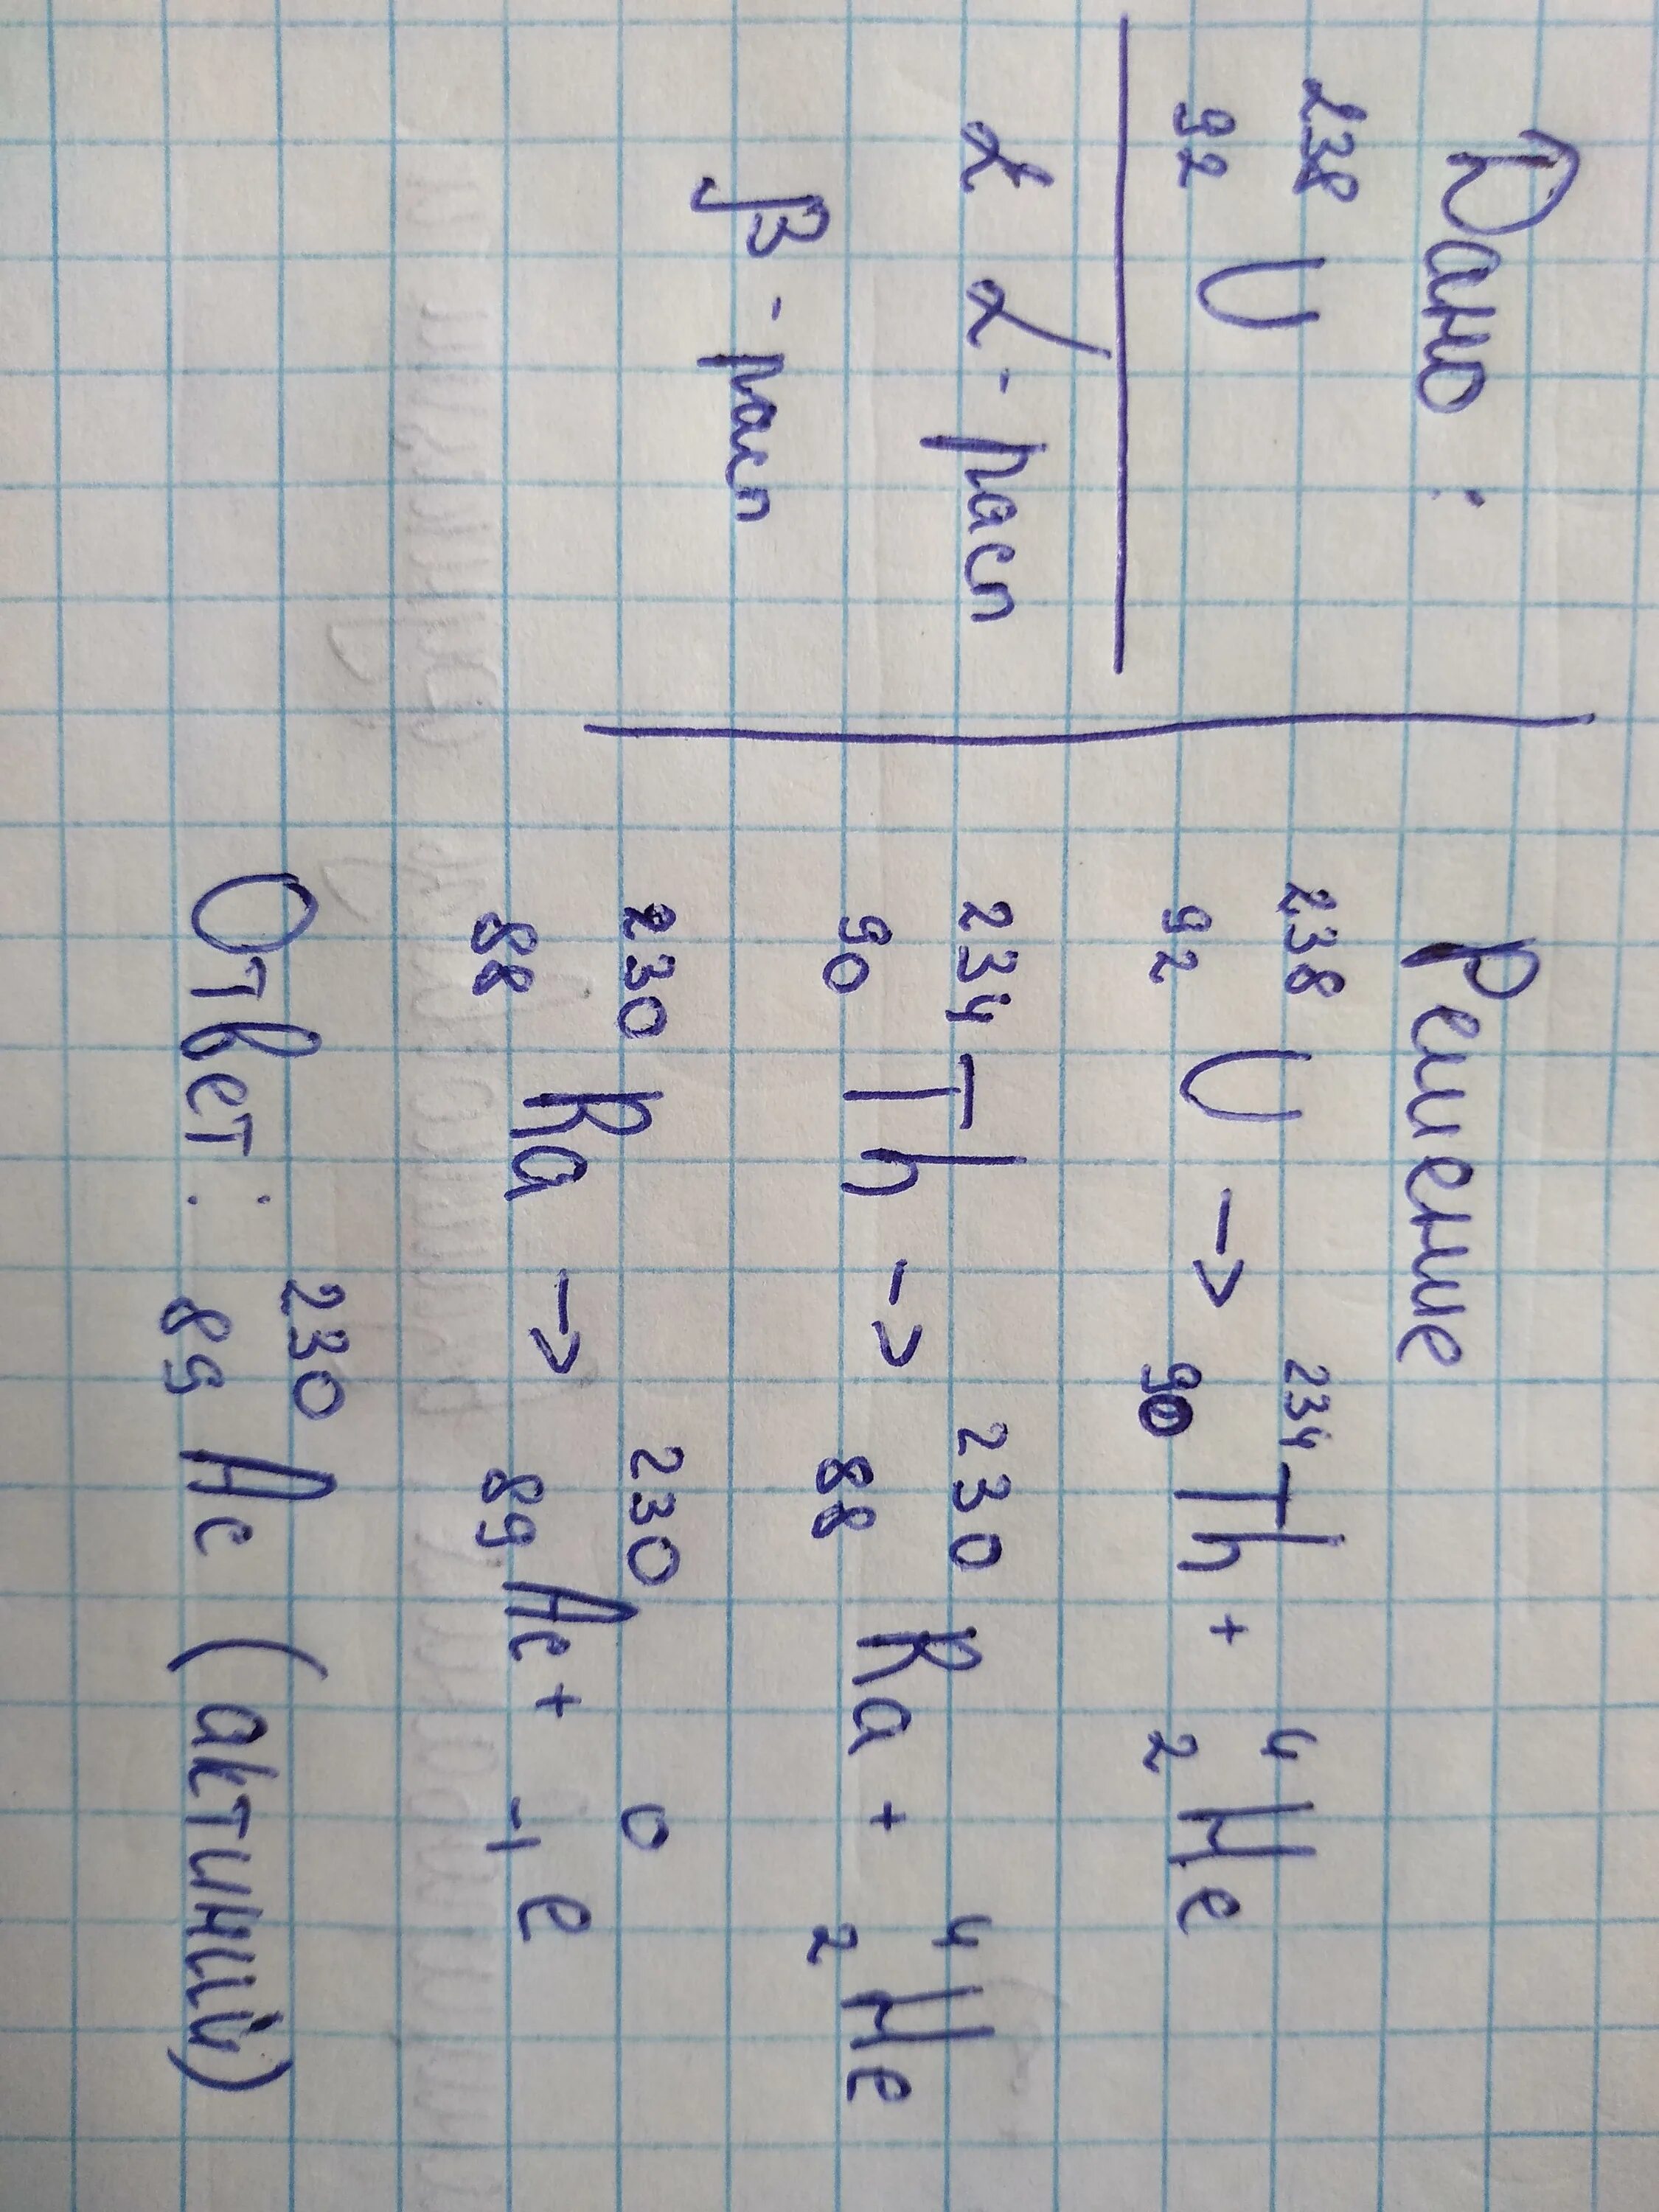 Дано:
²³⁸₉₂U
2 α - расп
β - расп
Решение
²³⁸₉₂U → ²³⁴₉₀Th + ⁴₂He
²³⁴₉₀Th → ²³⁰₈₈Ra + ⁴₂He
²³⁰₈₈Ra → ²³⁰₈₉Ac + ⁰₋₁e
Ответ: ²³⁰₈₉Ac (актиний)